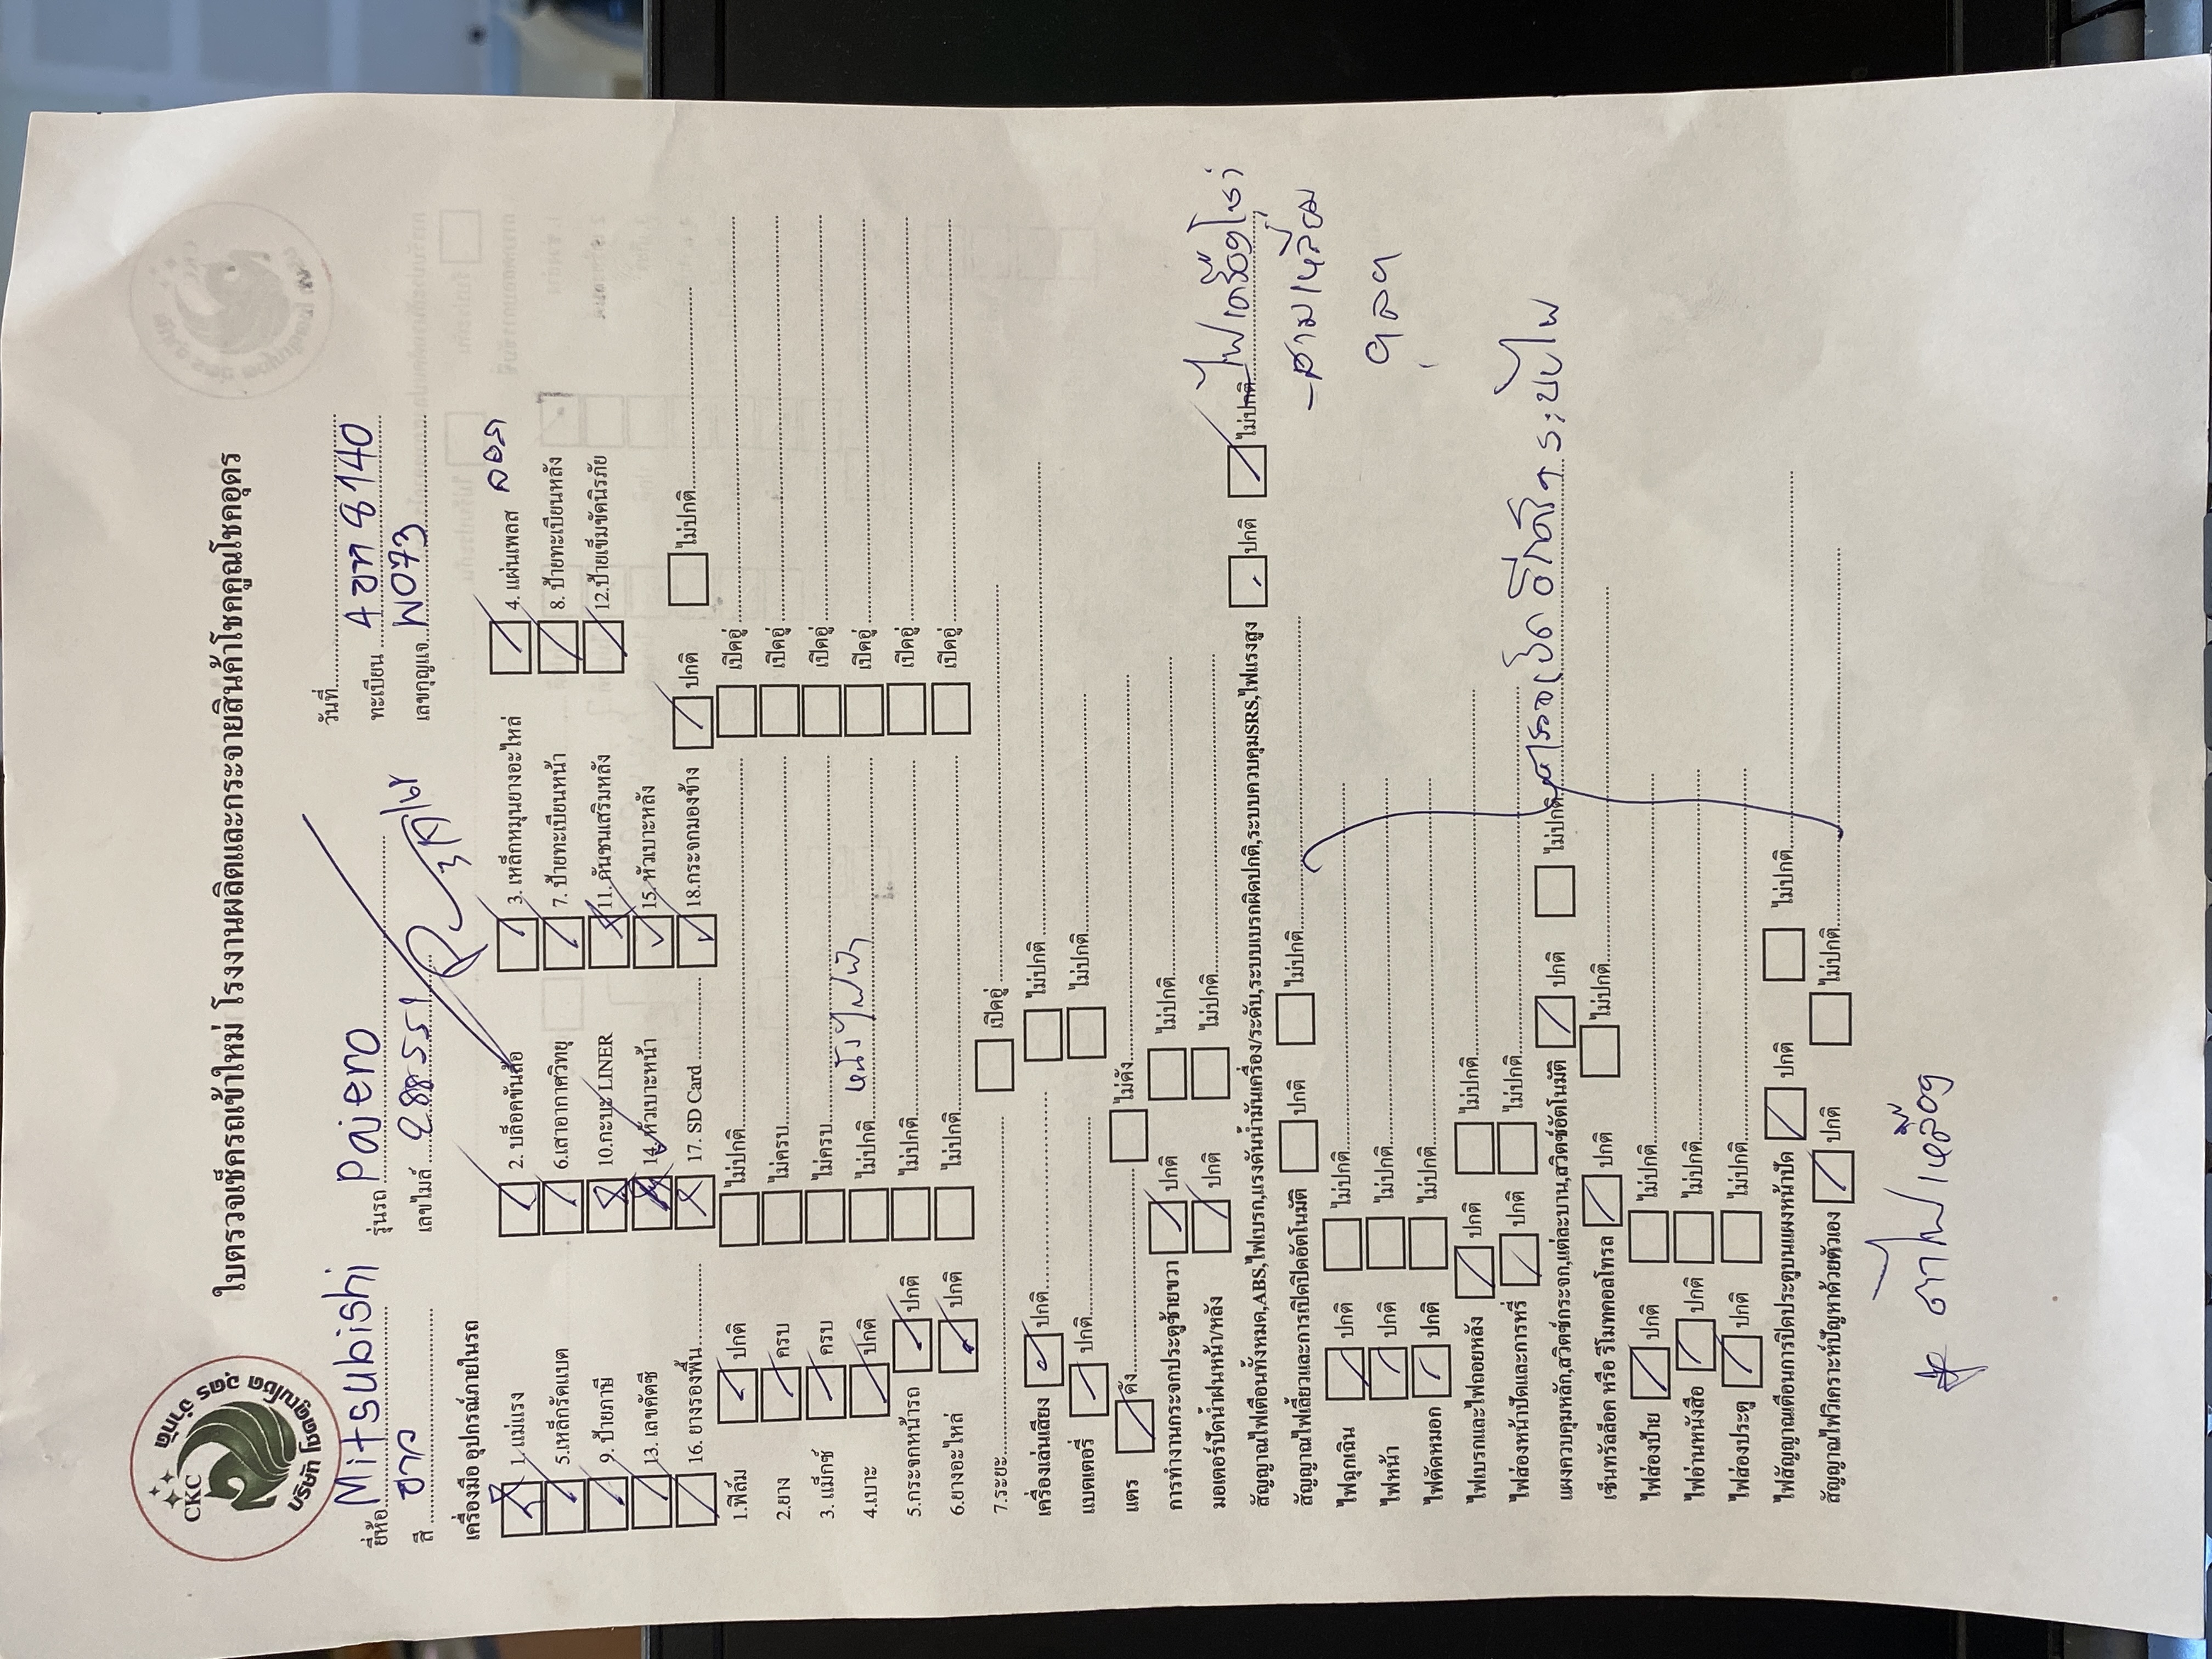 CKC
บริษัท คูณโชคอุดร จำกัด
ใบตรวจเช็ครถเข้าใหม่ โรงงานผลิตและกระจายสินค้าโชคคูณโชคอุดร
วันที่
ยี่ห้อ Mitsubishi รุ่นรถ Pajero ทะเบียน 4 ขท 8140
สี ขาว เลขไมล์ 288551 เลขกุญแจ W073
เครื่องมือ อุปกรณ์ภายในรถ
1. แม่แรง 2. บล็อคขันล้อ 3. เหล็กหมุนยางอะไหล่ 4. แผ่นเพลส ลอก
5.เหล็กรัดแบต 6.เสาอากาศวิทยุ 7. ป้ายทะเบียนหน้า 8. ป้ายทะเบียนหลัง
9. ป้ายภาษี 10.กะบะ LINER 11. คันชนเสริมหลัง 12.ป้ายเข็มขัดนิรภัย
13. เลขคัตซี 14. หัวเบาะหน้า 15. หัวเบาะหลัง
16. ยางรองพื้น 17. SD Card 18.กระจกมองข้าง ปกติ ไม่ปกติ
1.ฟิล์ม ปกติ ไม่ปกติ เปิดอู่
2.ยาง ครบ ไม่ครบ เปิดอู่
3. แม็กซ์ ครบ ไม่ครบ เปิดอู่
4.เบาะ ปกติ ไม่ปกติ หนังไฟฟ้า เปิดอู่
5.กระจกหน้ารถ ปกติ ไม่ปกติ เปิดอู่
6.ยางอะไหล่ ปกติ ไม่ปกติ เปิดอู่
7.ระยะ เปิดอู่
เครื่องเล่นเสียง ปกติ ไม่ปกติ
แบตเตอรี่ ปกติ ไม่ปกติ
แตร ดัง ไม่ดัง
การทำงานกระจกประตูซ้ายขวา ปกติ ไม่ปกติ
มอเตอร์ปัดน้ำฝนหน้า/หลัง ปกติ ไม่ปกติ
สัญญาณไฟเตือนทั้งหมด,ABS,ไฟเบรก,แรงดันน้ำมันเครื่อง/ระดับ,ระบบเบรกผิดปกติ,ระบบควบคุมSRS,ไฟแรงสูง ปกติ ไม่ปกติ ไฟเครื่องโชว์
- สามเหลี่ยม
สัญญาณไฟเลี้ยวและการเปิดปิดอัตโนมัติ ปกติ ไม่ปกติ
ไฟฉุกเฉิน ปกติ ไม่ปกติ
ไฟหน้า ปกติ ไม่ปกติ
ไฟตัดหมอก ปกติ ไม่ปกติ
ไฟเบรกและไฟถอยหลัง ปกติ ไม่ปกติ
ไฟส่องหน้าปัดและการหรี่ ปกติ ไม่ปกติ
แผงควบคุมหลัก,สวิตช์กระจก,แต่ละบาน,สวิตช์อัตโนมัติ ปกติ ไม่ปกติ ตรวจเช็คอีกครั้ง ระบบไฟ
เซ็นทรัลล็อค หรือ รีโมทคอลโทรล ปกติ ไม่ปกติ
ไฟส่องป้าย ปกติ ไม่ปกติ
ไฟอ่านหนังสือ ปกติ ไม่ปกติ
ไฟส่องประตู ปกติ ไม่ปกติ
ไฟสัญญาณเตือนการปิดประตูบนแผงหน้าปัด ปกติ ไม่ปกติ
สัญญาณไฟวิเคราะห์ปัญหาด้วยตัวเอง ปกติ ไม่ปกติ
ตาไฟเหลือง